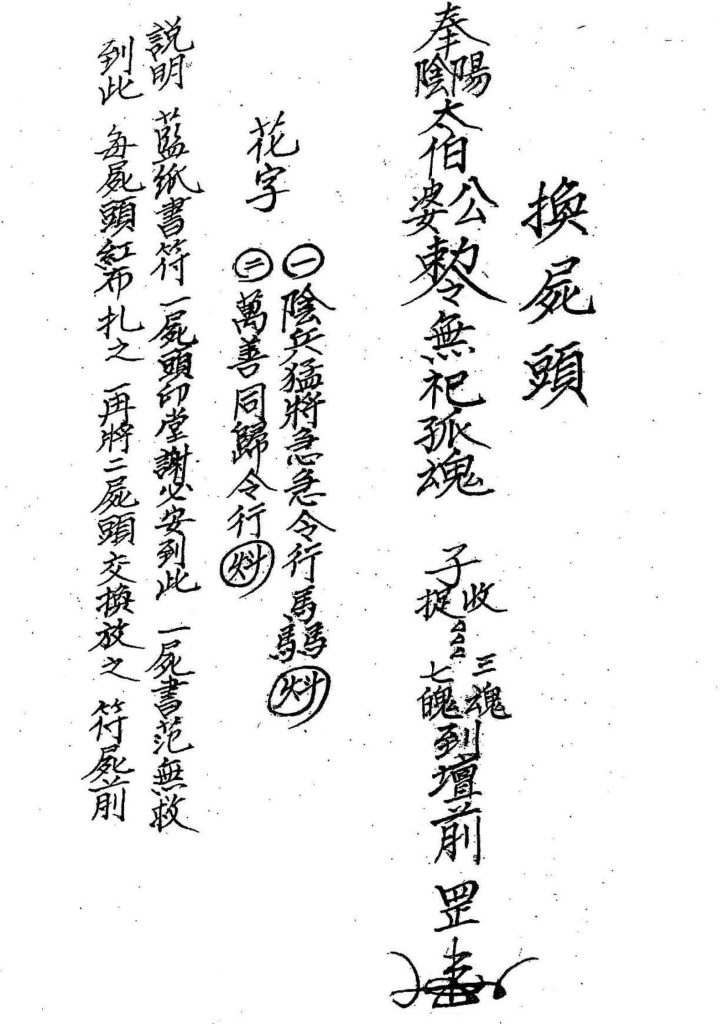 換屍頭
奉陰陽太伯公婆勅令無祀孤魂 子捉收△△△七魄三魂到壇前 罡
花字 ㊀陰兵猛將急急令行
㊁萬善同歸令行
説明 藍紙書符 一屍頭印堂謝必安到此 一屍書范無救
到此 每屍頭紅布扎之 再將二屍頭交換放之 符屍前